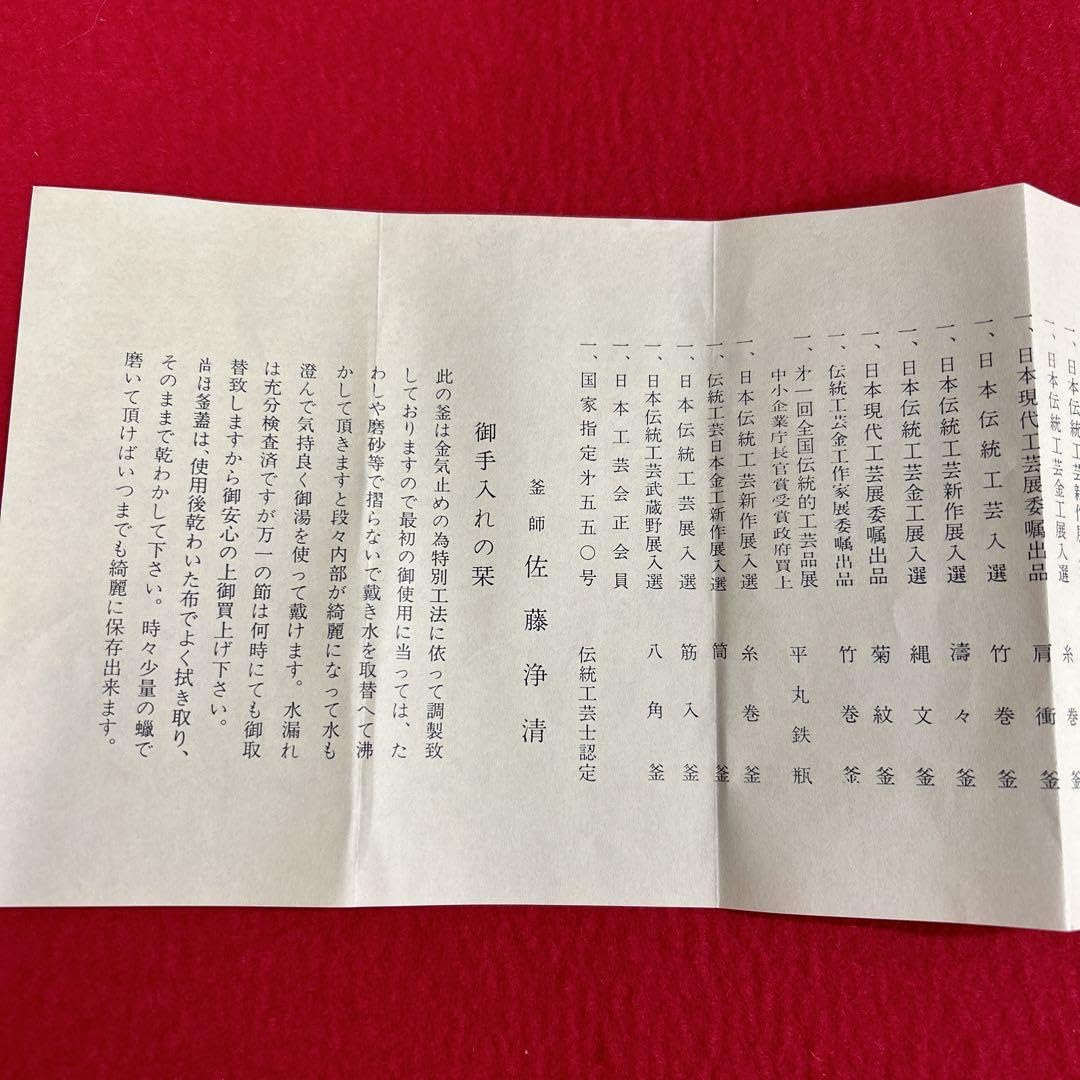 一、日本伝統工芸新作展入選 糸巻釜
一、日本伝統工芸金工展入選
一、日本現代工芸展委嘱出品 肩衝釜
一、日本伝統工芸入選 竹巻釜
一、日本伝統工芸新作展入選 濤々釜
一、日本伝統工芸金工展入選 縄文釜
一、日本現代工芸展委嘱出品 菊紋釜
一、伝統工芸金工作家展委嘱出品 竹巻釜
一、㐧一回全国伝統的工芸品展
中小企業庁長官賞受賞政府買上 平丸鉄瓶
一、日本伝統工芸新作展入選 糸巻釜
一、伝統工芸日本金工新作展入選 筒釜
一、日本伝統工芸展入選 筋入釜
一、日本伝統工芸武蔵野展入選 八角釜
一、日本工芸会正会員
一、国家指定㐧五五〇号 伝統工芸士認定
釜師 佐藤浄清
御手入れの栞
此の釜は金気止めの為特別工法に依って調製致
しておりますので最初の御使用に当っては、た
わしや磨砂等で摺らないで戴き水を取替へて沸
かして頂きますと段々内部が綺麗になって水も
澄んで気持良く御湯を使って戴けます。水漏れ
は充分検査済ですが万一の節は何時にても御取
替致しますから御安心の上御買上げ下さい。
尚ほ釜蓋は、使用後乾わいた布でよく拭き取り、
そのままで乾わかして下さい。時々少量の蠟で
磨いて頂けばいつまでも綺麗に保存出来ます。